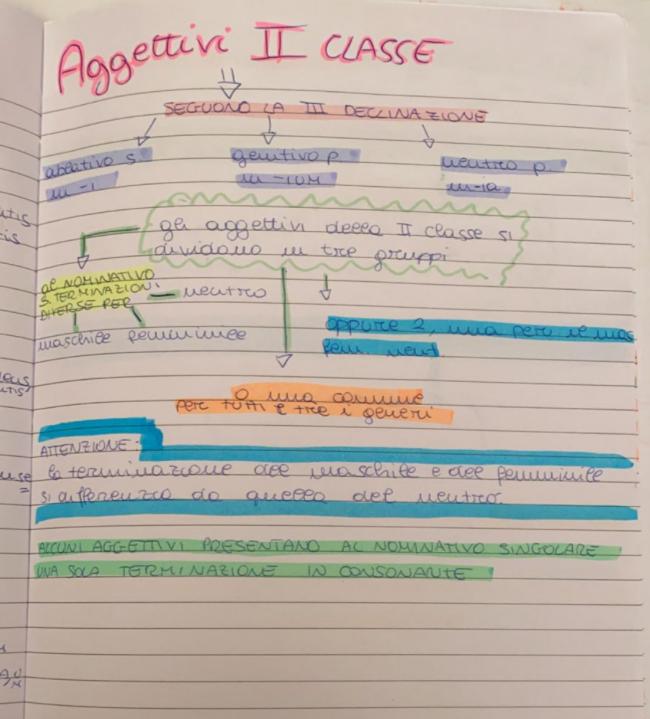 Aggettivi II CLASSE
SEGUONO LA III DECLINAZIONE
ablativo s.
in -i
genitivo p.
in -IUM
neutro p.
in -ia
gli aggettivi della II classe si
dividono in tre gruppi
al NOMINATIVO
3 TERMINAZIONI
DIVERSE PER
neutro
maschile femminile
oppure 2, una per il mas
fem. neut
O una comune
PER TUTTI E TRE i generi
ATTENZIONE:
la terminazione del maschile e del femminile
si differenzia da quella del neutro.
ALCUNI AGGETTIVI PRESENTANO AL NOMINATIVO SINGOLARE
UNA SOLA TERMINAZIONE IN CONSONANTE